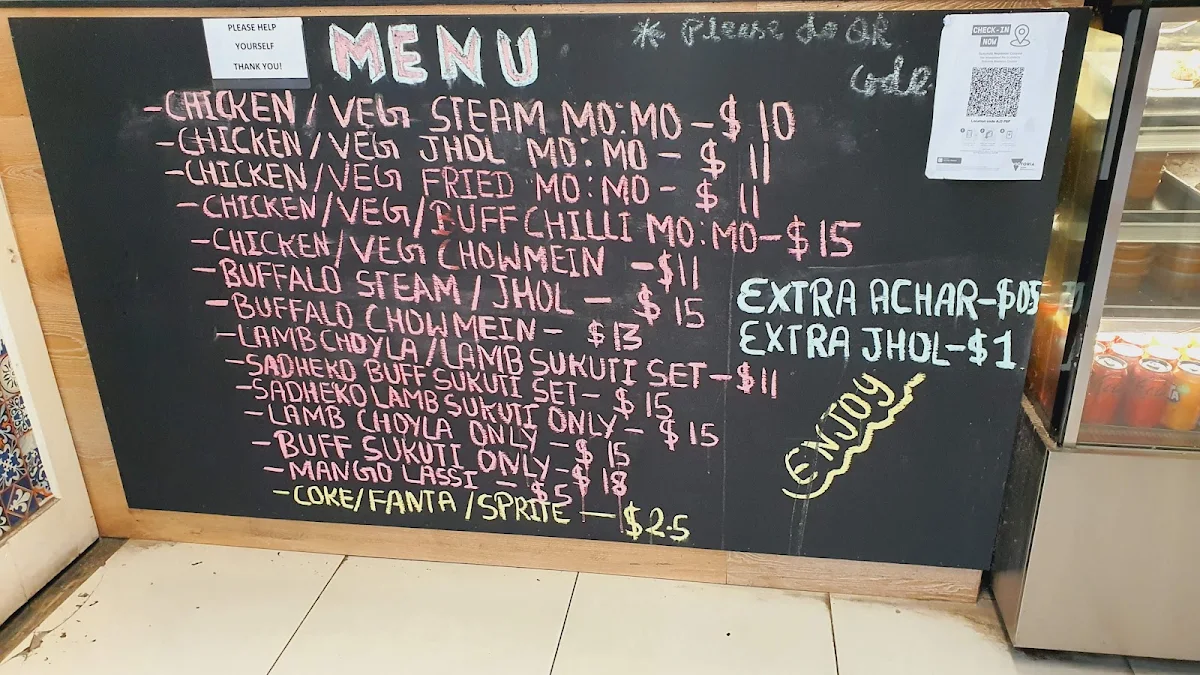 PLEASE HELP
YOURSELF
THANK YOU!
MENU
* Please do QR
code.
CHECK-IN
NOW
-CHICKEN/VEG STEAM MO:MO -$ 10
-CHICKEN/VEG JHOL MO:MO - $ 11
-CHICKEN/VEG FRIED MO:MO - $ 11
-CHICKEN/VEG/BUFF CHILLI MO:MO-$15
-CHICKEN/VEG CHOWMEIN -$11
-BUFFALO STEAM/JHOL - $ 15
-BUFFALO CHOWMEIN- $13
-LAMB CHOYLA/LAMB SUKUTI SET-$11
-SADHEKO BUFF SUKUTI SET- $ 15
-SADHEKO LAMB SUKUTI ONLY - $ 15
-LAMB CHOYLA ONLY -$ 15
-BUFF SUKUTI ONLY-$ 18
-MANGO LASSI - $5
-COKE/FANTA/SPRITE - $2.5
EXTRA ACHAR-$05
EXTRA JHOL-$1
ENJOY